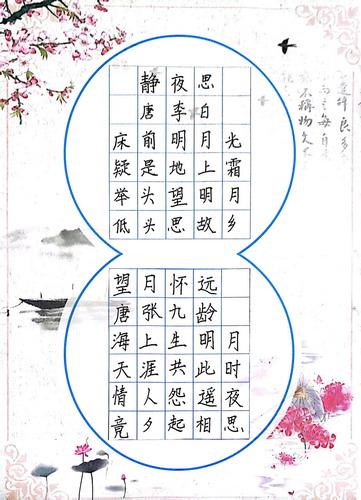 静夜思
唐李白
床前明月光
疑是地上霜
举头望明月
低头思故乡
望月怀远
唐张九龄
海上生明月
天涯共此时
情人怨遥夜
竟夕起相思